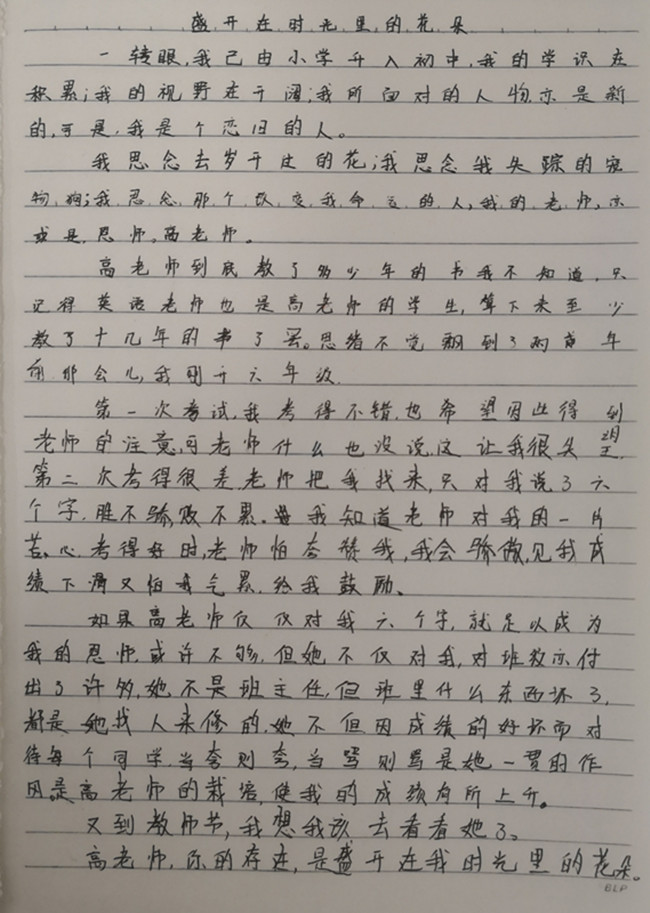 盛开在时光里的花朵
一转眼,我已由小学升入初中,我的学识在
积累;我的视野在开阔;我所面对的人物亦是新
的,可是,我是个恋旧的人。
我思念去岁开过的花;我思念我失踪的宠
物狗;我思念那个改变我命运的人,我的老师,亦
或是,恩师。高老师。
高老师到底教了多少年的书我不知道,只
记得英语老师也是高老师的学生,算下来至少
教了十几年的书了罢。思绪不觉飘到了两首年
前那会儿,我刚升六年级.
第一次考试,我考得不错,也希望因此得到
老师的注意,可老师什么也没说,这让我很失望.
第二次考得很差老师把我找来,只对我说了六
个字,胜不骄败不累.我知道老师对我的一片
苦心,考得好时,老师怕夸赞我,我会骄傲,见我成
绩下滑又怕我气累,给我鼓励、
如果高老师仅仅对我六个字,就足以成为
我的恩师,或许不够,但她不仅对我,对班教亦付
出了许多,她不是班主任,但班里什么东西坏了,
都是她找人来修的,她不但因成绩的好坏而对
待每个同学,当夸则夸,当骂则骂是她一贯的作
风是高老师的栽培,使我的成绩有所上升。
又到教师节,我想我该去看看她了、
高老师,你的存在,是盛开在我时光里的花朵。
BLP